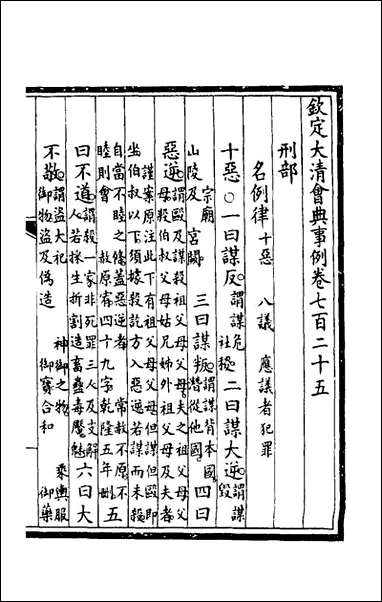 欽定大清會典事例卷七百二十五
刑部
名例律十惡　八議　應議者犯罪
十惡○一曰謀反謂謀危社稷二曰謀大逆謂謀毀
宗廟山陵及宮闕三曰謀叛謂謀背本國潛從他國四曰
惡逆謂毆及謀殺祖父母父母夫之祖父母父母殺伯叔父母姑兄姊外祖父母及夫者
謹案原注此下有祖父母父母但謀但毆即坐伯叔以下須據殺訖方入惡逆若謀而未殺
自當不睦之條蓋惡逆者常赦不原不睦則會赦原宥四十九字乾隆五年刪五
曰不道謂殺一家非死罪三人及支解人若採生折割造畜蠱毒魘魅六曰大
不敬謂盜大祀神御之物乘輿服御物盜及偽造御寶合和御藥